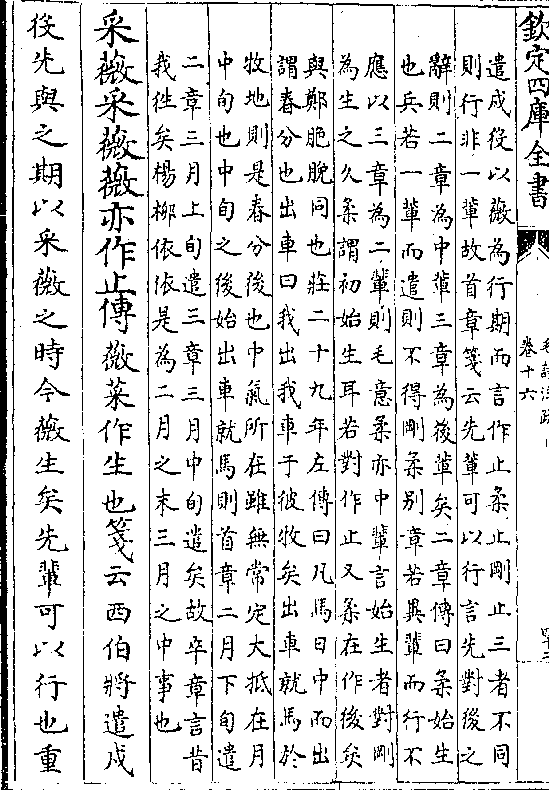 欽定四庫全書
卷十六
遣戍役以薇為行期而言作止柔止剛止三者不同
則行非一輩故首章箋云先輩可以行言先對後之
辭則二章為中輩三章為後輩矣二章傳曰柔始生
也兵若一輩而遣則不得剛柔別章若異輩而行不
應以三章為二輩則毛意柔亦中輩言始生者對剛
為生之久柔謂初始生耳若對作止又柔在作後矣
與鄭脆脕同也莊二十九年左傳曰凡馬日中而出
謂春分也出車曰我出我車于彼牧矣出車就馬於
牧地則是春分後也中氣所在雖無常定大抵在月
中旬也中旬之後始出車就馬則首章二月下旬遣
二章三月上旬遣三章三月中旬遣矣故卒章言昔
我徃矣楊栁依依是為二月之末三月之中事也
采薇采薇薇亦作止傳薇菜作生也箋云西伯將遣戍
役先與之期以采薇之時今薇生矣先輩可以行也重